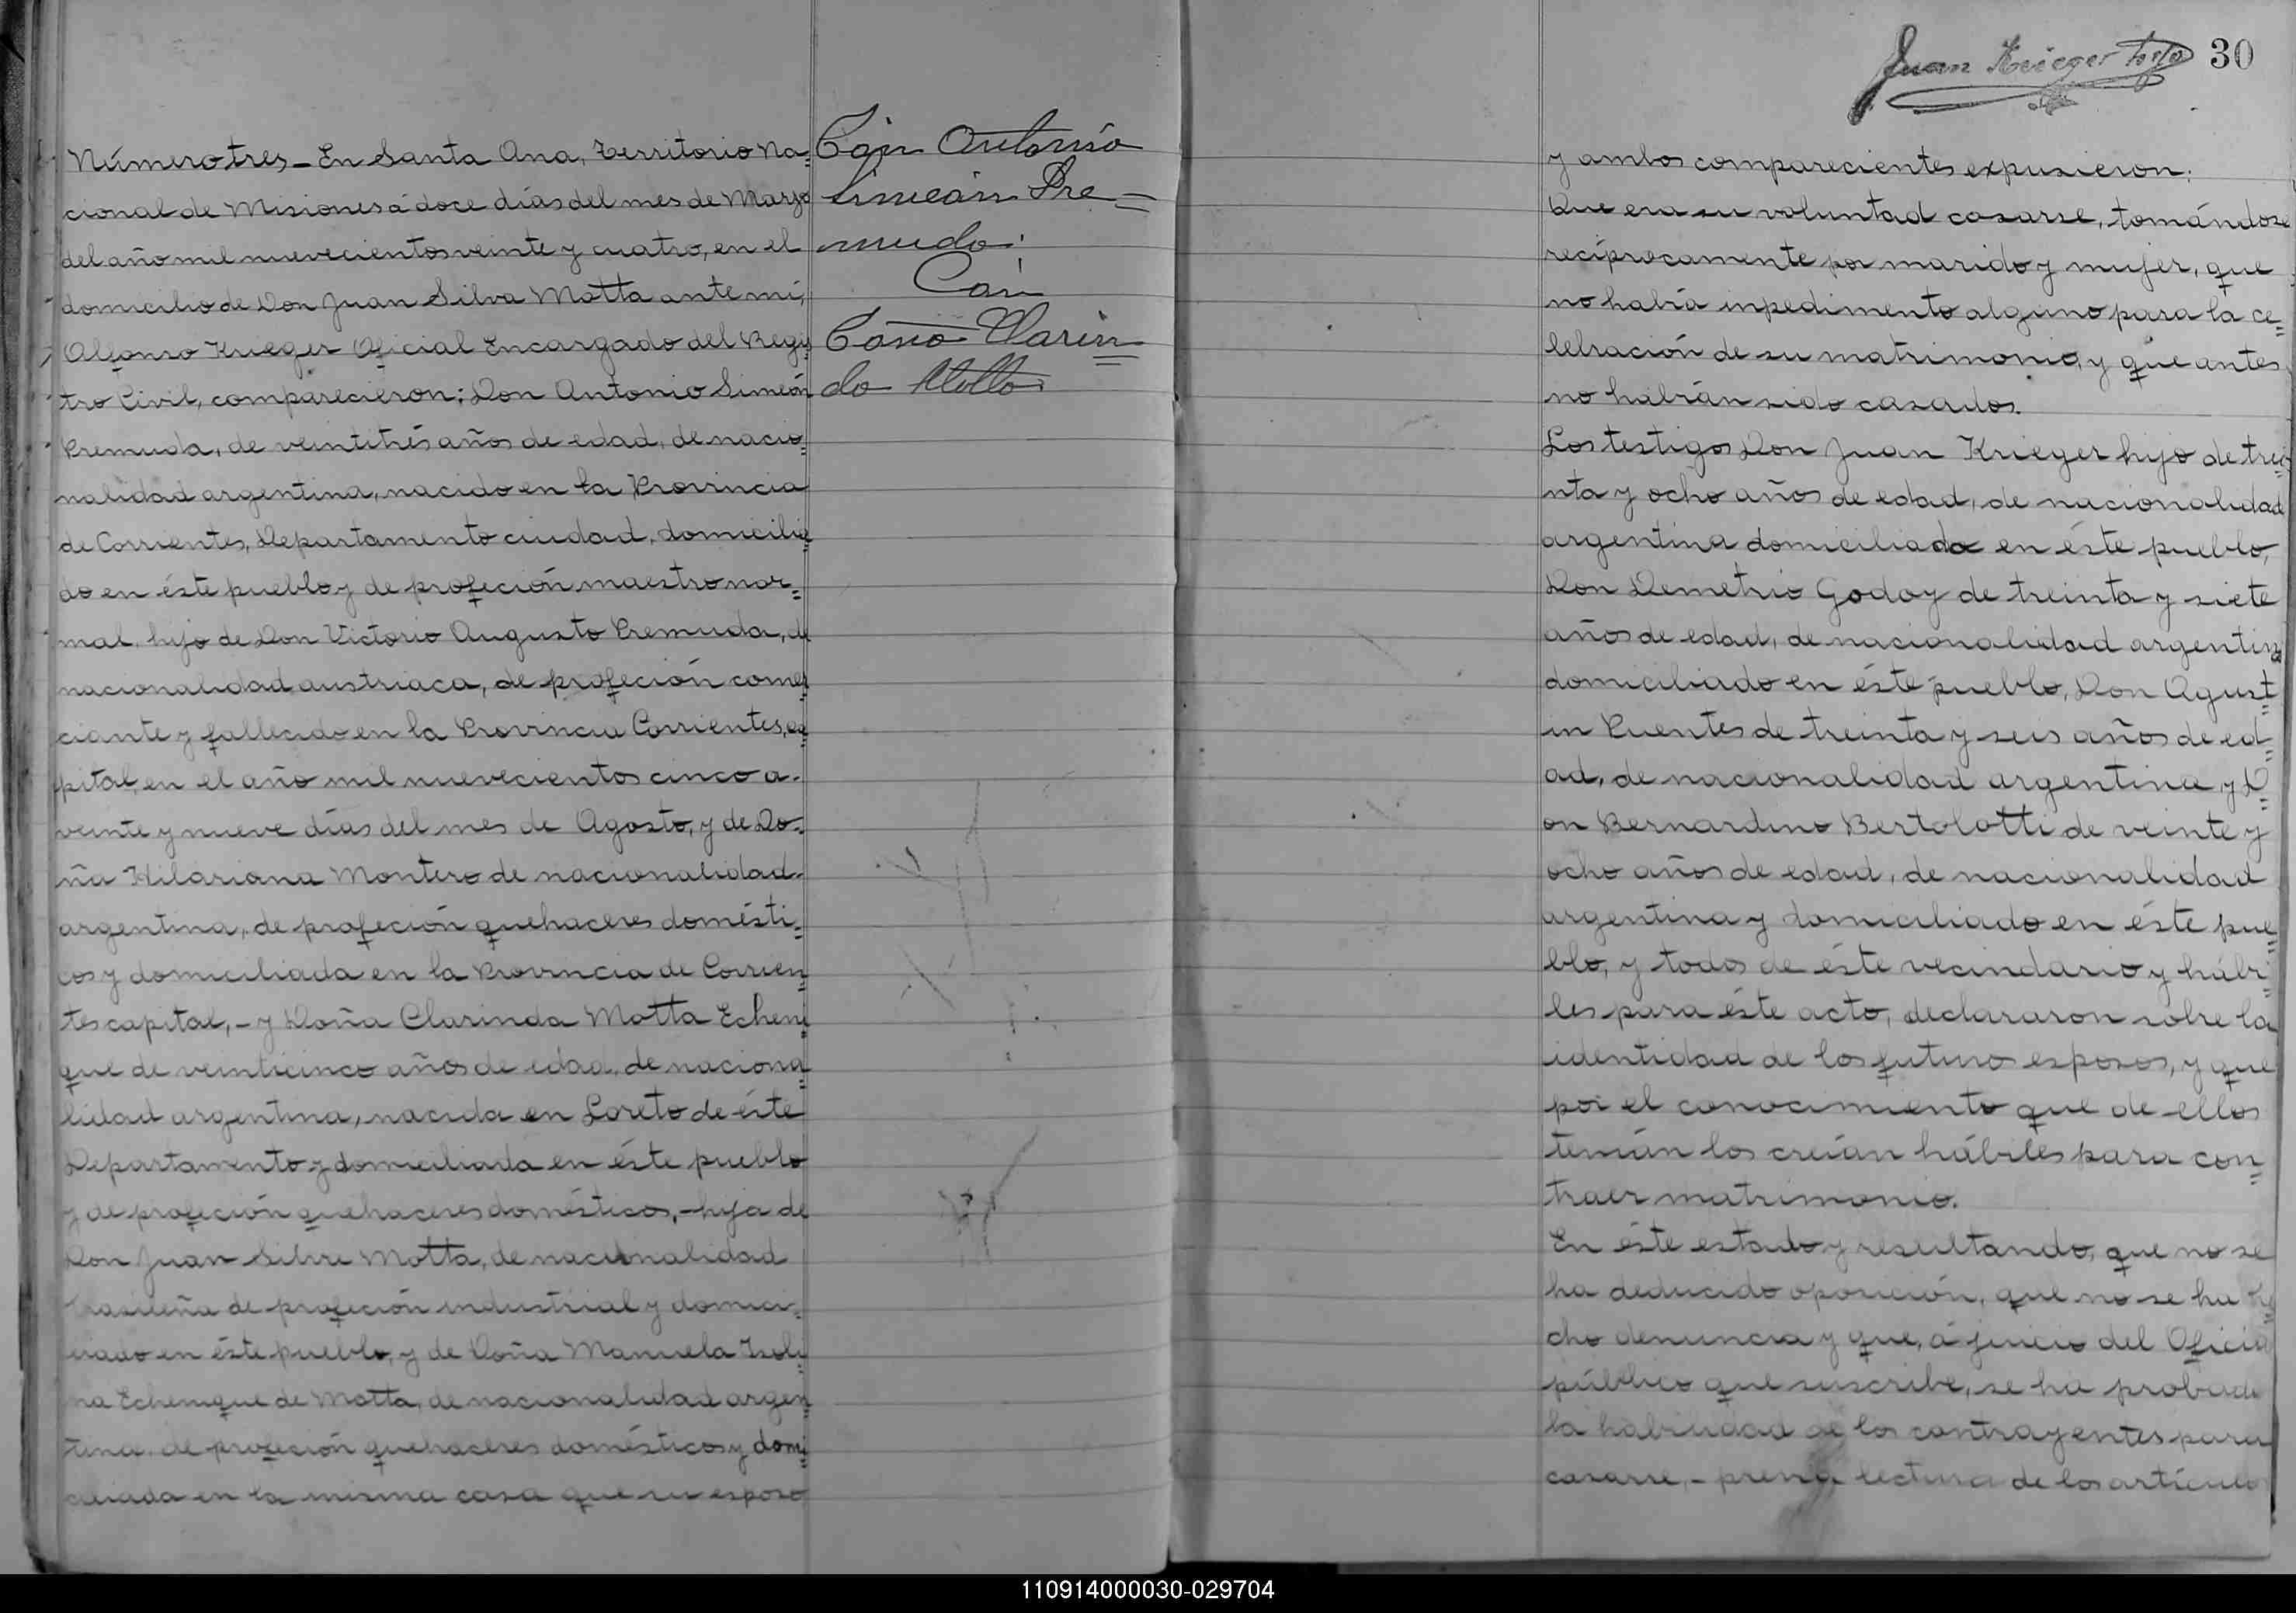 Número tres,_ En Santa Ana, Territorio Na=
cional de Misiones á doce días del mes de Marzo
del año mil nuevecientos veinte y cuatro, en el
domicilio de Don Juan Silva Motta ante mi,
Alfonso Krieger Oficial Encargado del Regis
tro Civil, comparecieron: Don Antonio Simeón
Premuda, de veintitrés años de edad, de nacio=
nalidad argentina, nacido en la Provincia
de Corrientes, Departamento ciudad, domicilia
do en éste pueblo y de profeción maestro nor=
mal, hijo de Don Victorio Augusto Premuda, de
nacionalidad austriaca, de profeción comer
ciante y fallecido en la Provincia Corrientes, ca=
pital, en el año mil nuevecientos cinco a.
veinte y nueve días del mes de Agosto, y de Do=
ña Hilariana Montero de nacionalidad.
argentina, de profeción quehaceres domésti=
cos y domiciliada en la Provincia de Corrien=
tes capital,- y Doña Clarinda Motta Echeni
que de veinticinco años de edad, de naciona=
lidad argentina, nacida en Loreto de éste
Departamento y domiciliada en éste pueblo
y de profeción quehaceres domésticos,- hija de
Don Juan Silva Motta, de nacionalidad
brasileña de profeción industrial y domici=
liado en éste pueblo, y de Doña Manuela Isoli=
na Echenique de Motta, de nacionalidad argen=
tina, de profeción quehaceres domésticos y domi=
ciliada en la misma casa que su esposo
Con Antonio
Simeón Pre=
muda:
Con
Doña Clarin=
da Motta
Juan Krieger hijo
30
y ambos comparecientes expusieron:
Que era su voluntad casarse, tomándose
recíprocamente por marido y mujer, que
no había inpedimento alguno para la ce=
lebración de su matrimonio, y que antes
no habían sido casados.
Los testigos Don Juan Krieger hijo de trei=
nta y ocho años de edad, de nacionalidad
argentina domiciliado en éste pueblo,
Don Demetrio Godoy de treinta y siete
años de edad, de nacionalidad argentina
domiciliado en éste pueblo, Don Agust=
in Puentes de treinta y seis años de ed=
ad, de nacionalidad argentina y D=
on Bernardino Bertolotti de veinte y
ocho años de edad, de nacionalidad
argentina y domiciliado en éste pue=
blo, y todos de éste vecindario y hábi=
les para éste acto, declararon sobre la
identidad de los futuros esposos, y que
por el conocimiento que de ellos
tenían los creían hábiles para con=
traer matrimonio.
En éste estado y resultando, que no se
ha deducido oposición, que no se ha he=
cho denuncia y que, á juicio del Oficial
público que suscribe, se ha probado
la habilidad de los contrayentes para
casarse,- previa lectura de los artículos
110914000030-029704